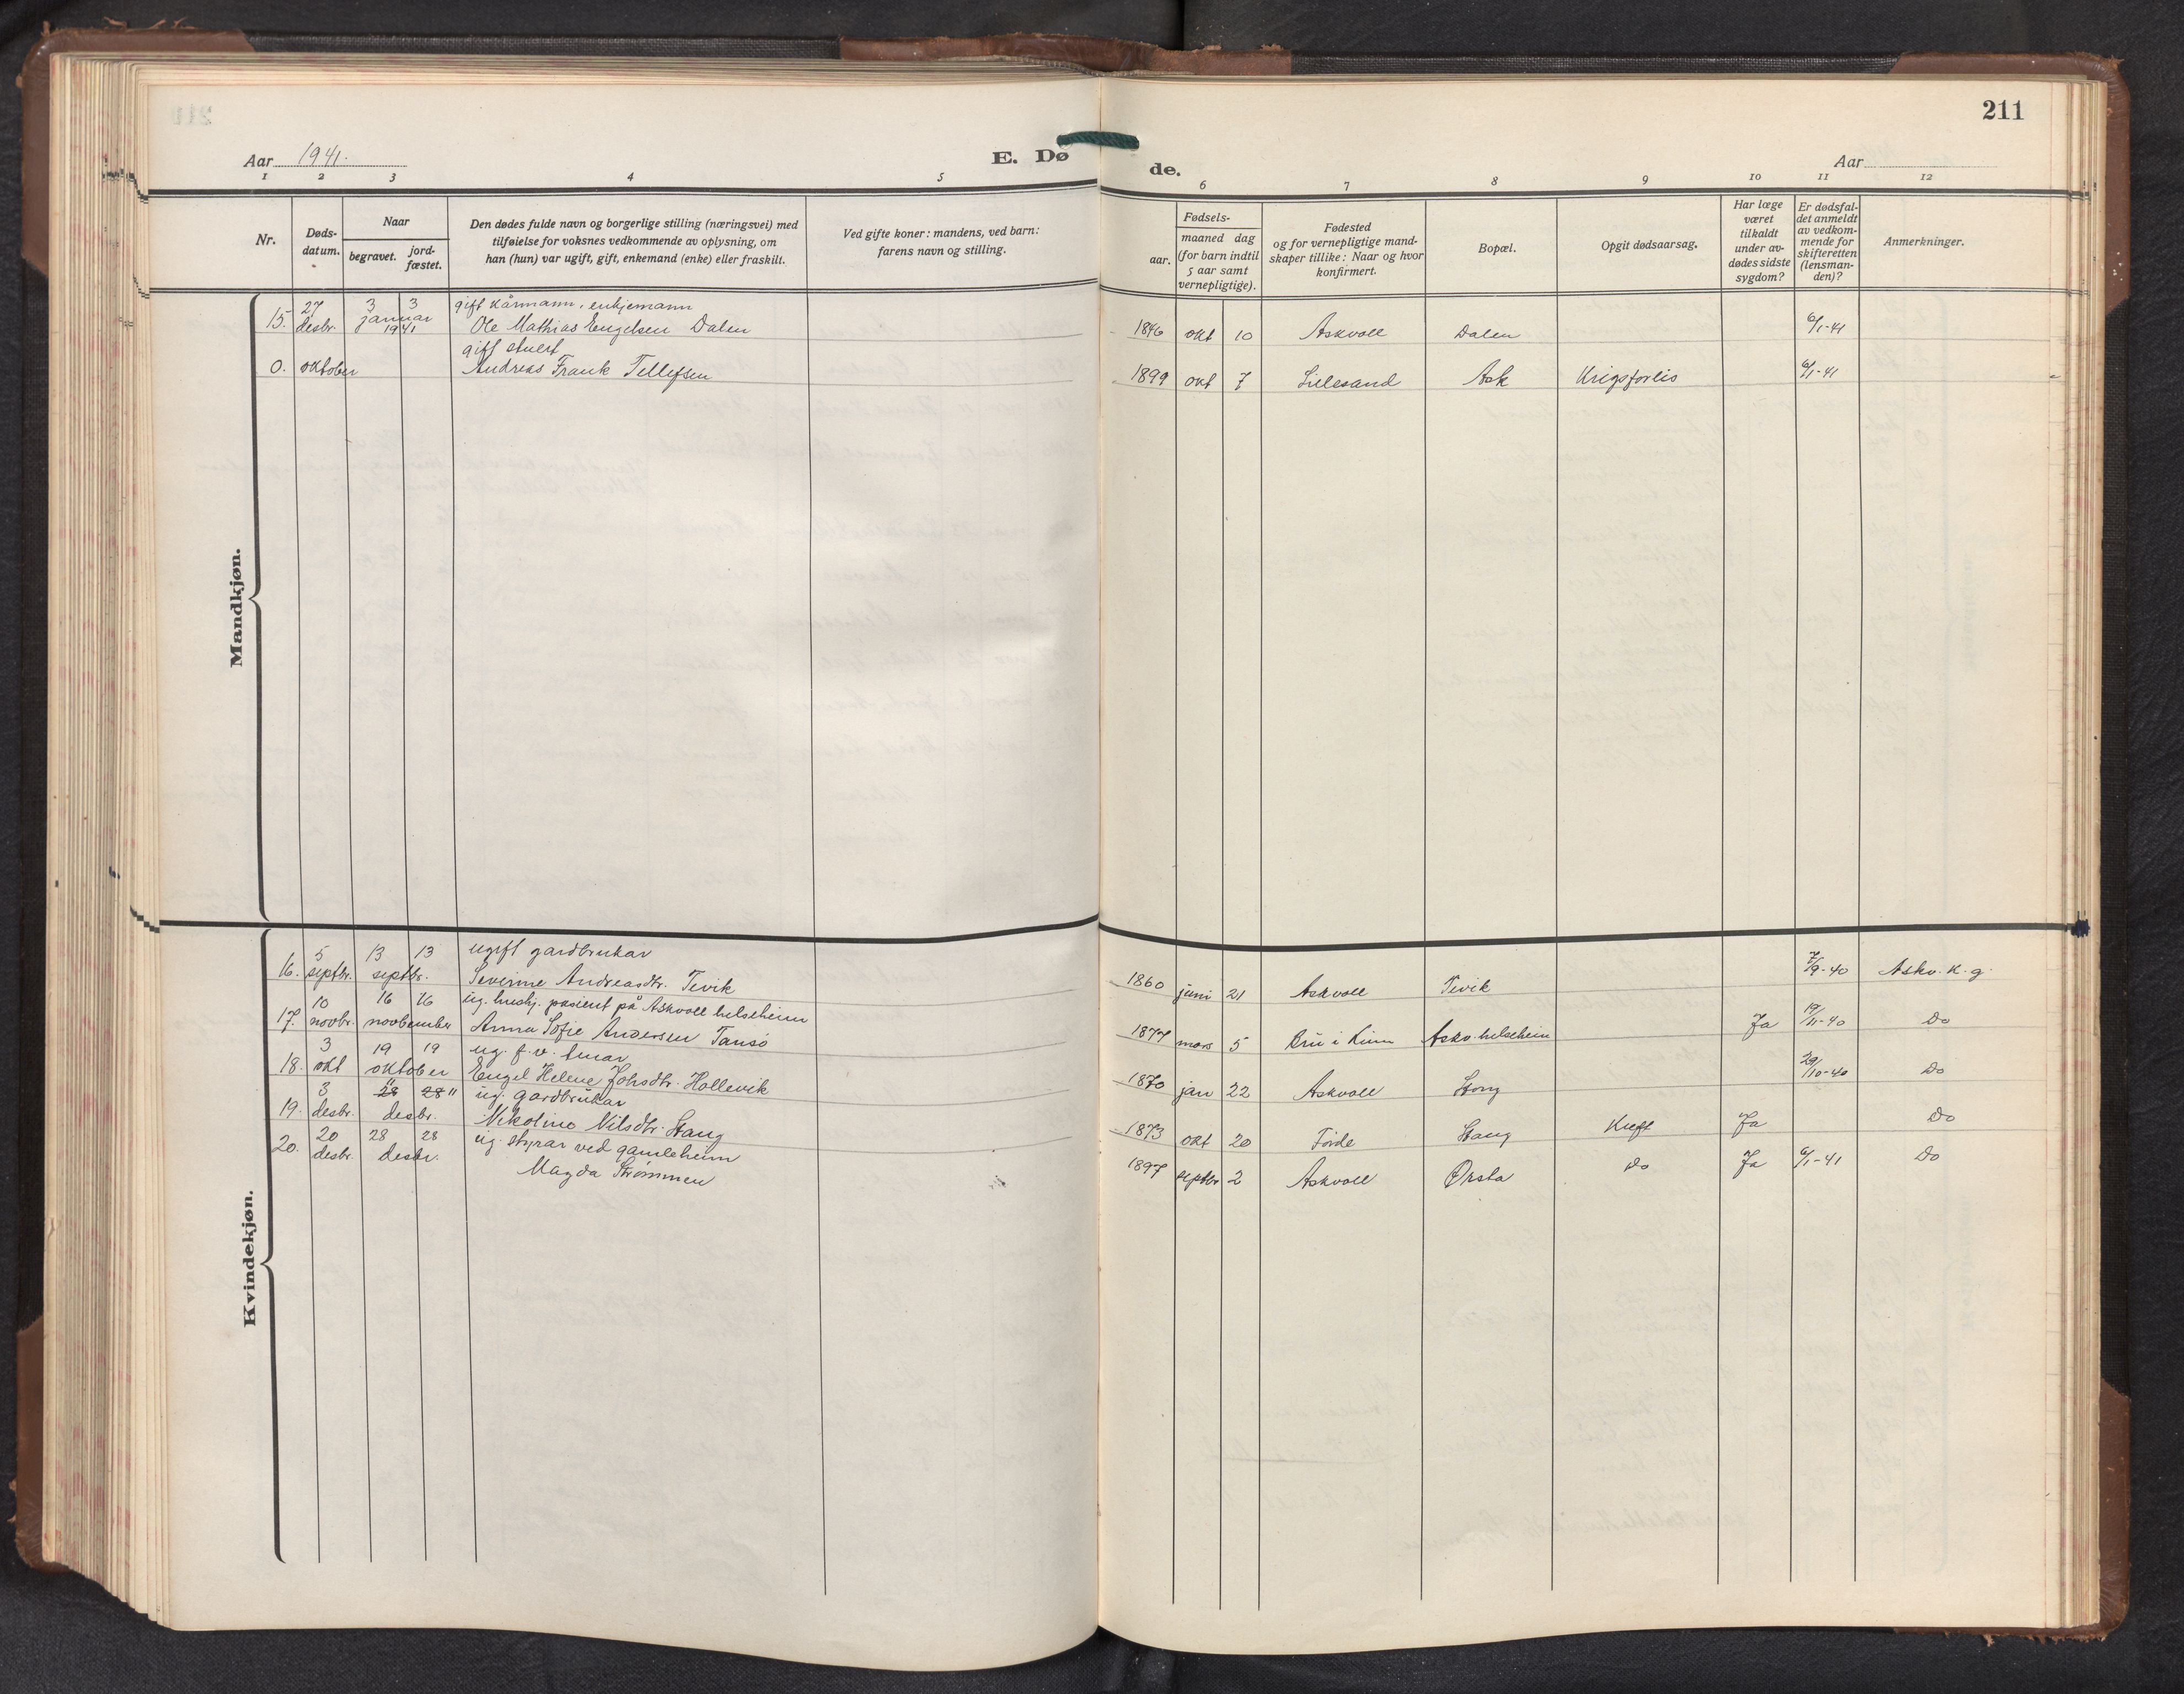 211
Aar 1941.
E. Dø
de.
Aar
1 2 3 4 5
6 7 8 9 10 11 12
Nr.
Døds-
datum.
Naar
begravet.
jord-
fæstet.
Den dødes fulde navn og borgerlige stilling (næringsvei) med
tilføielse for voksnes vedkommende av oplysning, om
han (hun) var ugift, gift, enkemand (enke) eller fraskilt.
Ved gifte koner: mandens, ved barn:
farens navn og stilling.
Fødsels-
aar.
maaned dag
(for barn indtil
5 aar samt
vernepligtige).
Fødested
og for vernepligtige mand-
skaper tillike: Naar og hvor
konfirmert.
Bopæl.
Opgit dødsaarsag.
Har læge
været
tilkaldt
under av-
dødes sidste
sygdom?
Er dødsfal-
det anmeldt
av vedkom-
mende for
skifteretten
(lensman-
den)?
Anmerkninger.
Mandkjøn.
27 3 3 gift kårmann, enkjemann
15. desbr. januar 1941 Ole Mathias Engelsen Dalen 1846 okt 10 Askvoll Dalen 6/1-41
gift stuert
0. oktober Andreas Frank Tellefsen 1899 okt 7 Lillesand Ask Krigsforlis 6/1-41
Kvindekjøn.
5 13 13 ugift gardbrukar
16. septbr. septbr. Severine Andreasdtr. Tevik 1860 juni 21 Askvoll Tevik 7/9-40 Askv. k. g.
10 16 16 ug. hushj. pasient på Askvoll helseheim
17. novbr. november Anna Sofie Andersen Tansø 1877 mars 5 Bru i Kinn Askv. helseheim Ja 19/11-40 Do
3 19 19 ug. f. v.
18. okt oktober Engel Helene Johsdtr. Hollevik 1870 jan 22 Askvoll Stong 29/10-40 Do
3 28 28 " ug. gardbrukar
19. desbr. desbr. Nikoline Nilsdtr. Stang 1873 okt 20 Førde Stang Kreft Ja Do
20 28 28 ug. styrar ved gamleheim
20. desbr. desbr. Magda Strømmen 1897 septbr 2 Askvoll Ørsta Do Ja 6/1-41 Do